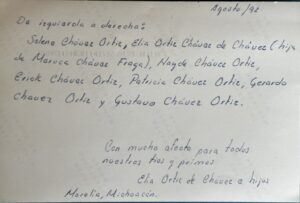 Agosto/92
De izquierda a derecha:
Selene Chávez Ortiz, Elia Ortiz Chávez de Chávez (hija
de Maruca Chávez Fraga), Nayde Chávez Ortiz,
Erick Chávez Ortiz, Patricia Chávez Ortiz, Gerardo
Chavez Ortiz y Gustavo Chávez Ortiz.
Con mucho afecto para todos
nuestros tios y primos
Elia Ortiz de Chavez e hijos
Morelia, Michoacán.